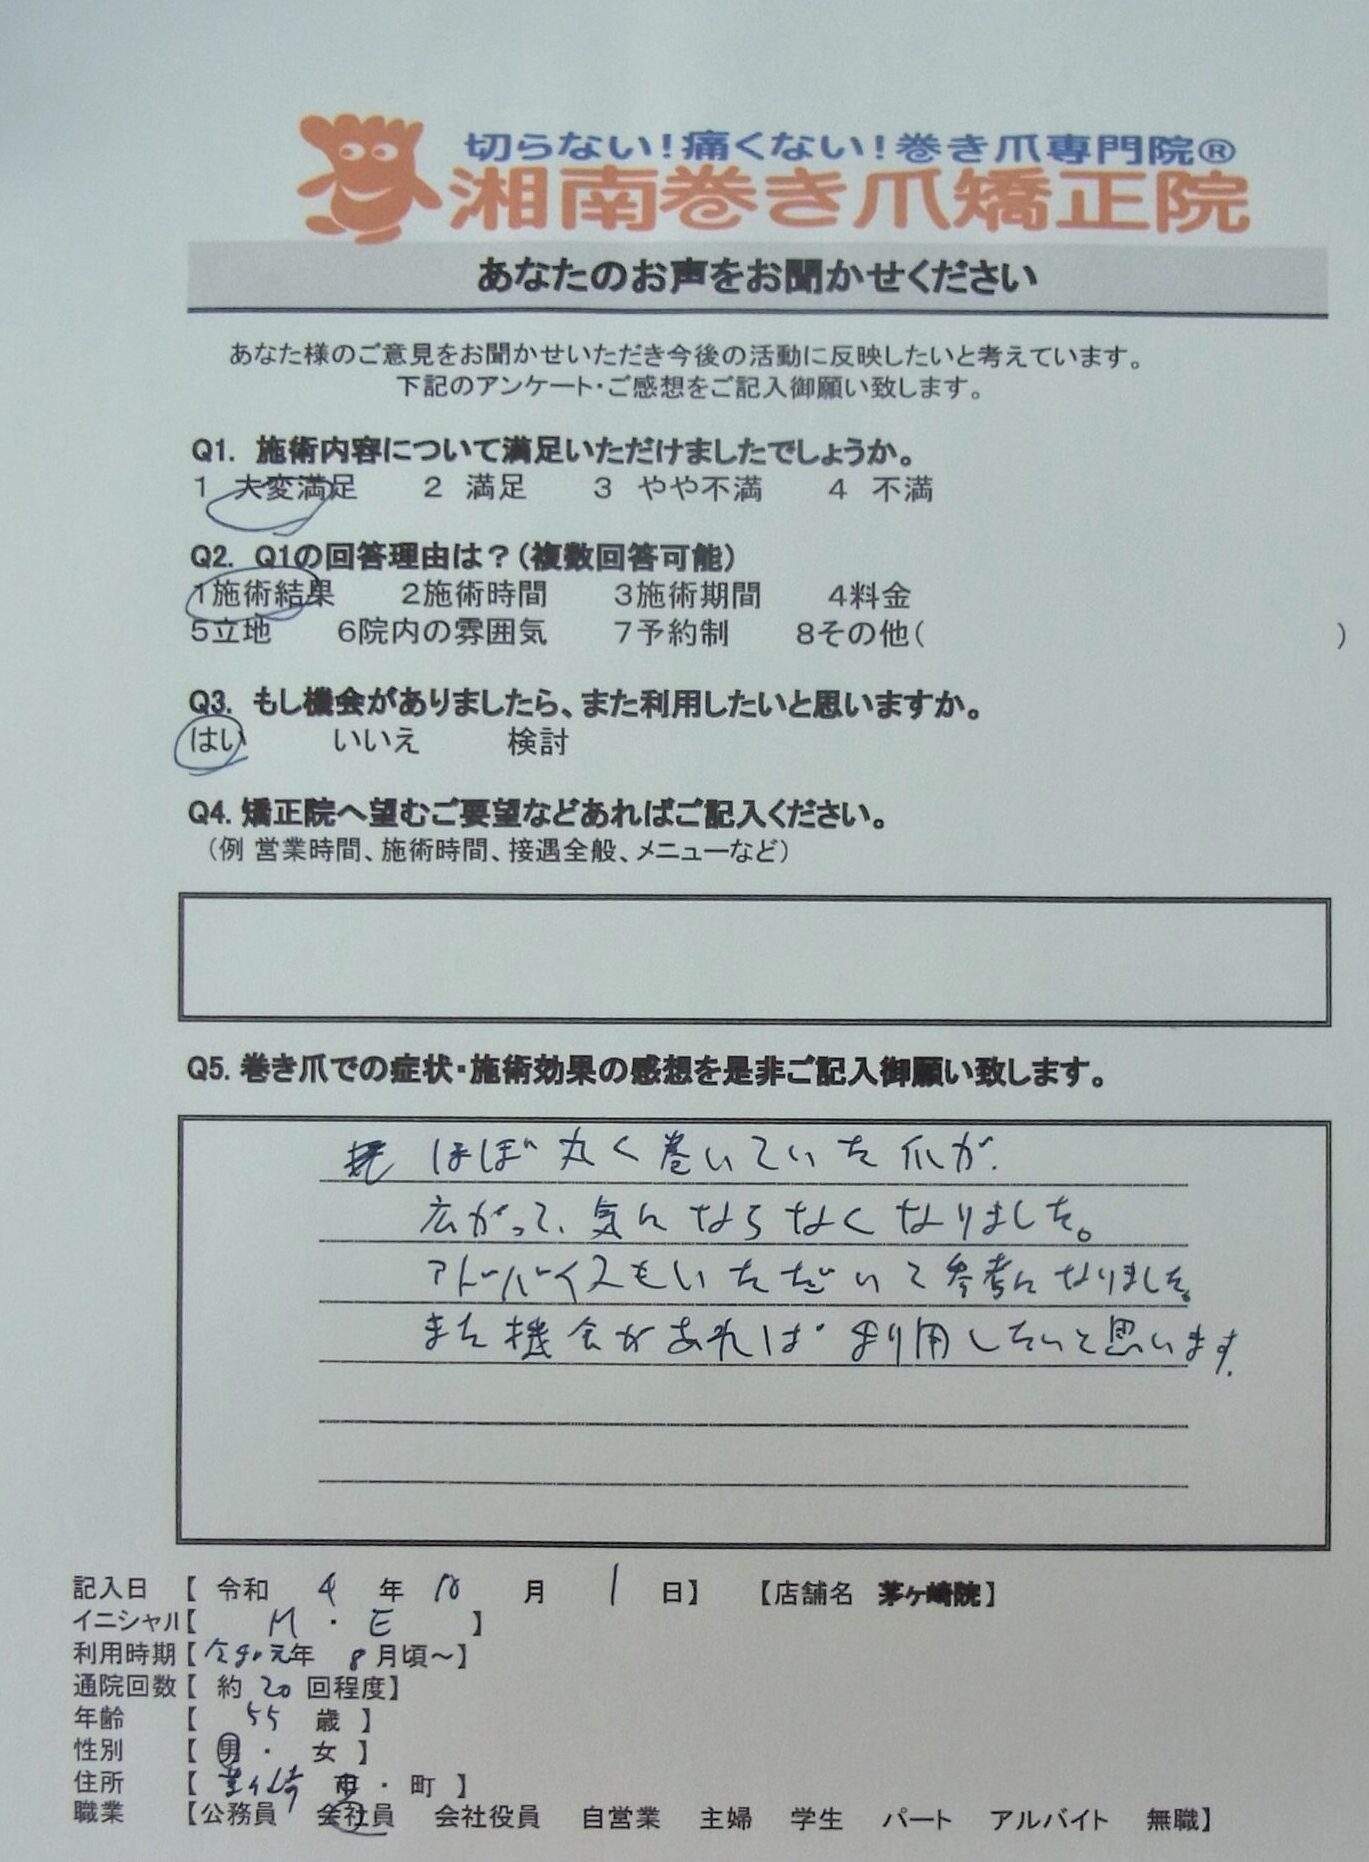 切らない！痛くない！巻き爪専門院®
湘南巻き爪矯正院
あなたのお声をお聞かせください
あなた様のご意見をお聞かせいただき今後の活動に反映したいと考えています。
下記のアンケート・ご感想をご記入御願い致します。
Q1. 施術内容について満足いただけましたでしょうか。
1 大変満足 2 満足 3 やや不満 4 不満
Q2. Q1の回答理由は？（複数回答可能）
1施術結果 2施術時間 3施術期間 4料金
5立地 6院内の雰囲気 7予約制 8その他（ ）
Q3. もし機会がありましたら、また利用したいと思いますか。
はい いいえ 検討
Q4. 矯正院へ望むご要望などあればご記入ください。
（例 営業時間、施術時間、接遇全般、メニューなど）
Q5. 巻き爪での症状・施術効果の感想を是非ご記入御願い致します。
ほぼ丸く巻いていた爪が
広がって、気にならなくなりました。
アドバイスもいただいて参考になりました。
また機会があれば利用したいと思います。
記入日 【 令和 4 年 10 月 1 日】 【店舗名 茅ヶ崎院】
イニシャル【 M ・ E 】
利用時期【令和元年 8 月頃～】
通院回数【 約 20 回程度】
年齢 【 55 歳 】
性別 【 男 ・ 女 】
住所 【 茅ヶ崎 市 ・ 町 】
職業 【公務員 会社員 会社役員 自営業 主婦 学生 パート アルバイト 無職】